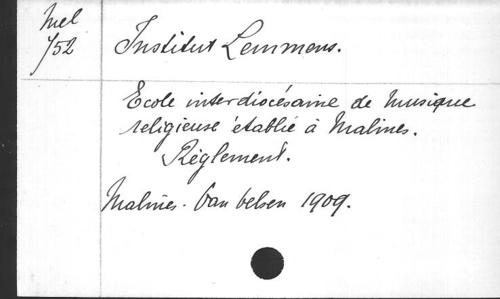 Mel
/52
Institut Lemmens.
Ecole interdiocésaine de Musique
religieuse établie à Malines.
Règlement.
Malines. Van Velsen 1909.